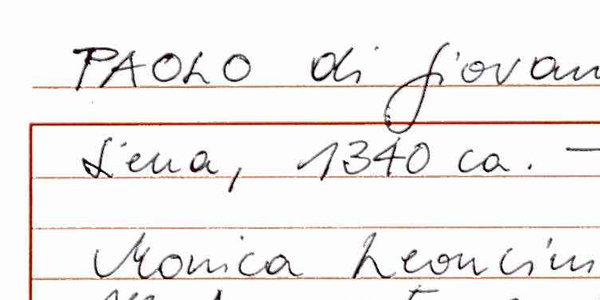 PAOLO di Giovan
Siena, 1340 ca. –
Monica Leoncin